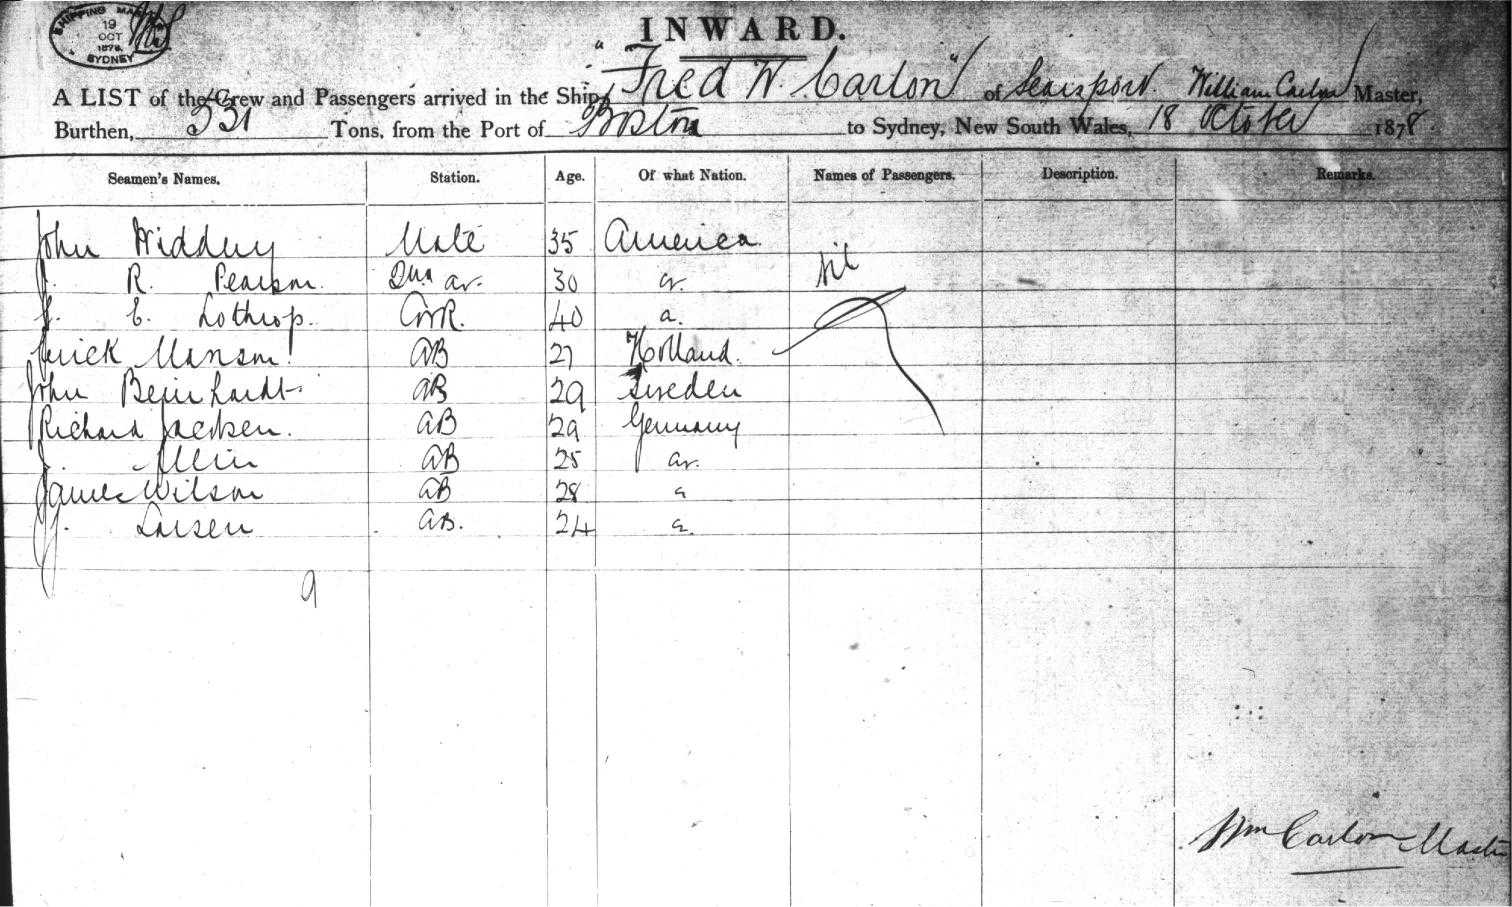 SHIPPING MAS
19
OCT
1878
SYDNEY
INWARD.
A LIST of the Crew and Passengers arrived in the Ship, "Fred W. Carlon" of Searsport. William Carlon Master,
Burthen, 531 Tons, from the Port of Boston to Sydney, New South Wales, 18 October 1878.
Seamen's Names. Station. Age. Of what Nation. Names of Passengers. Description. Remarks.
John Mate 35 America Nil
J. R. Pearson 30
J. E. Lothrop. 40 a.
Manson AB 27 Holland.
John AB 29 Sweden
Richard Jacksen. AB 29 Germany
J. Allin AB 25
James Wilson AB 28 a
J. Larsen AB. 24 a.
9
Wm Carlon Master